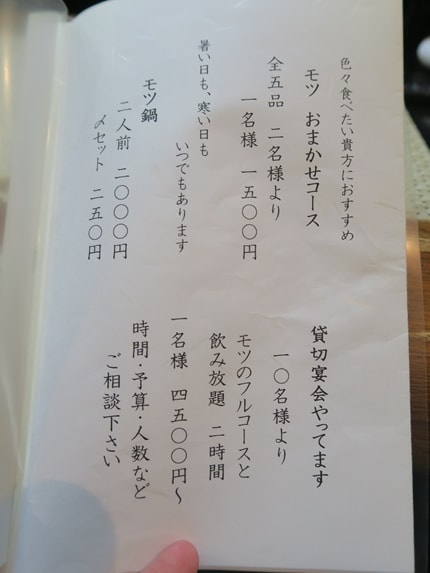 色々食べたい貴方におすすめ
モツ おまかせコース
全五品 二名様より
一名様 一五〇〇円
暑い日も、寒い日も
いつでもあります
モツ鍋
二人前 二〇〇〇円
〆セット 二五〇円
貸切宴会やってます
一〇名様より
モツのフルコースと
飲み放題 二時間
一名様 四五〇〇円～
時間・予算・人数など
ご相談下さい